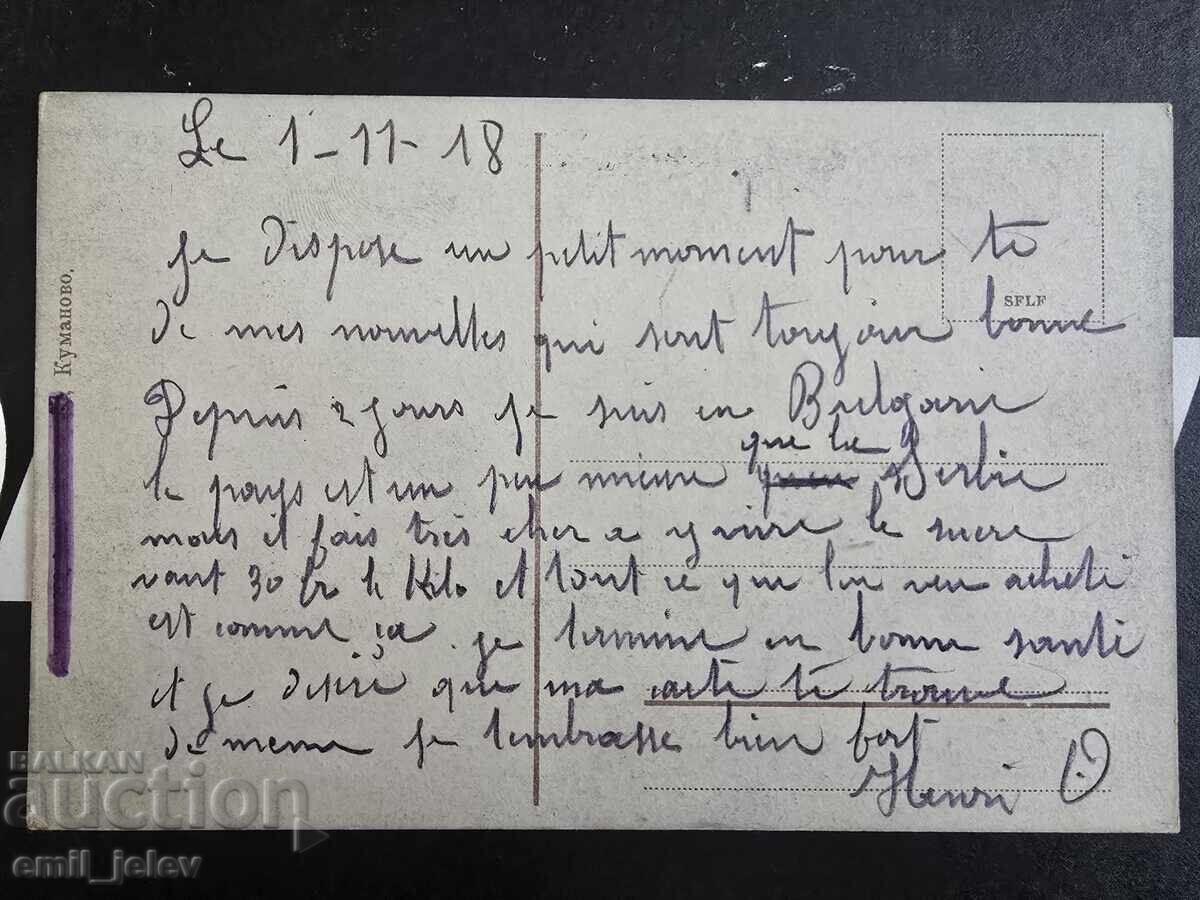 Le 1-11-18
je dispose un petit moment pour te
de mes nouvelles qui sont toujour bonne
Depuis 2 jours je suis en Bulgarie
le pays est un peu mieux que la Serbie
mais il fais très cher a y vivre le sucre
vaut 30 fr le Kilo et tout ce que lon veu acheté
est comme ça. je termine en bonne santé
et je desire que ma carte te trouve
de meme je tembrasse bien fort
Henri
SFLF
Куманово.
BALKAN
auction
emil_jelev